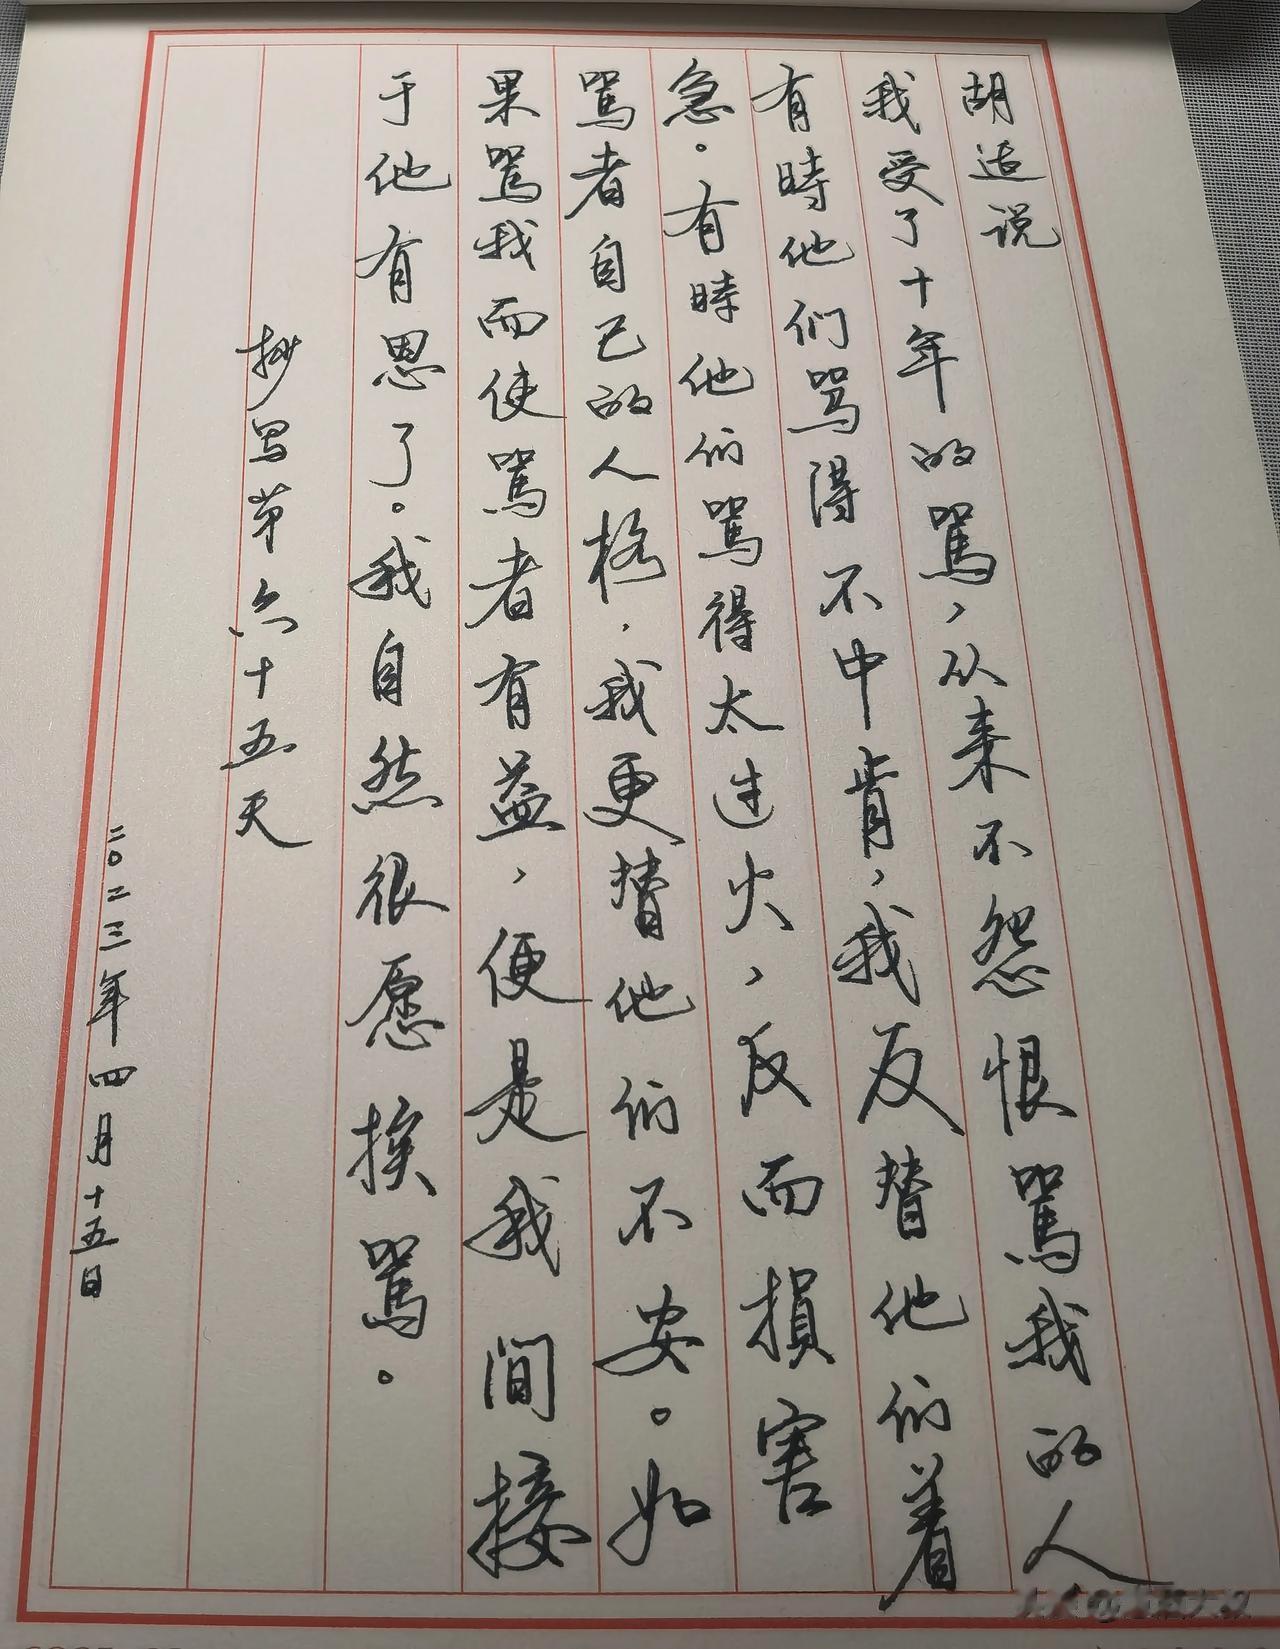 胡适说
我受了十年的駡，从来不怨恨駡我的人
有時他们骂得不中肯，我反替他们着
急。有時他们駡得太过火，反而損害
駡者自己的人格，我更替他们不安。如
果駡我而使駡者有益，便是我间接
于他有恩了。我自然很愿挨駡。
抄写第六十五天
二〇二三年四月十五日